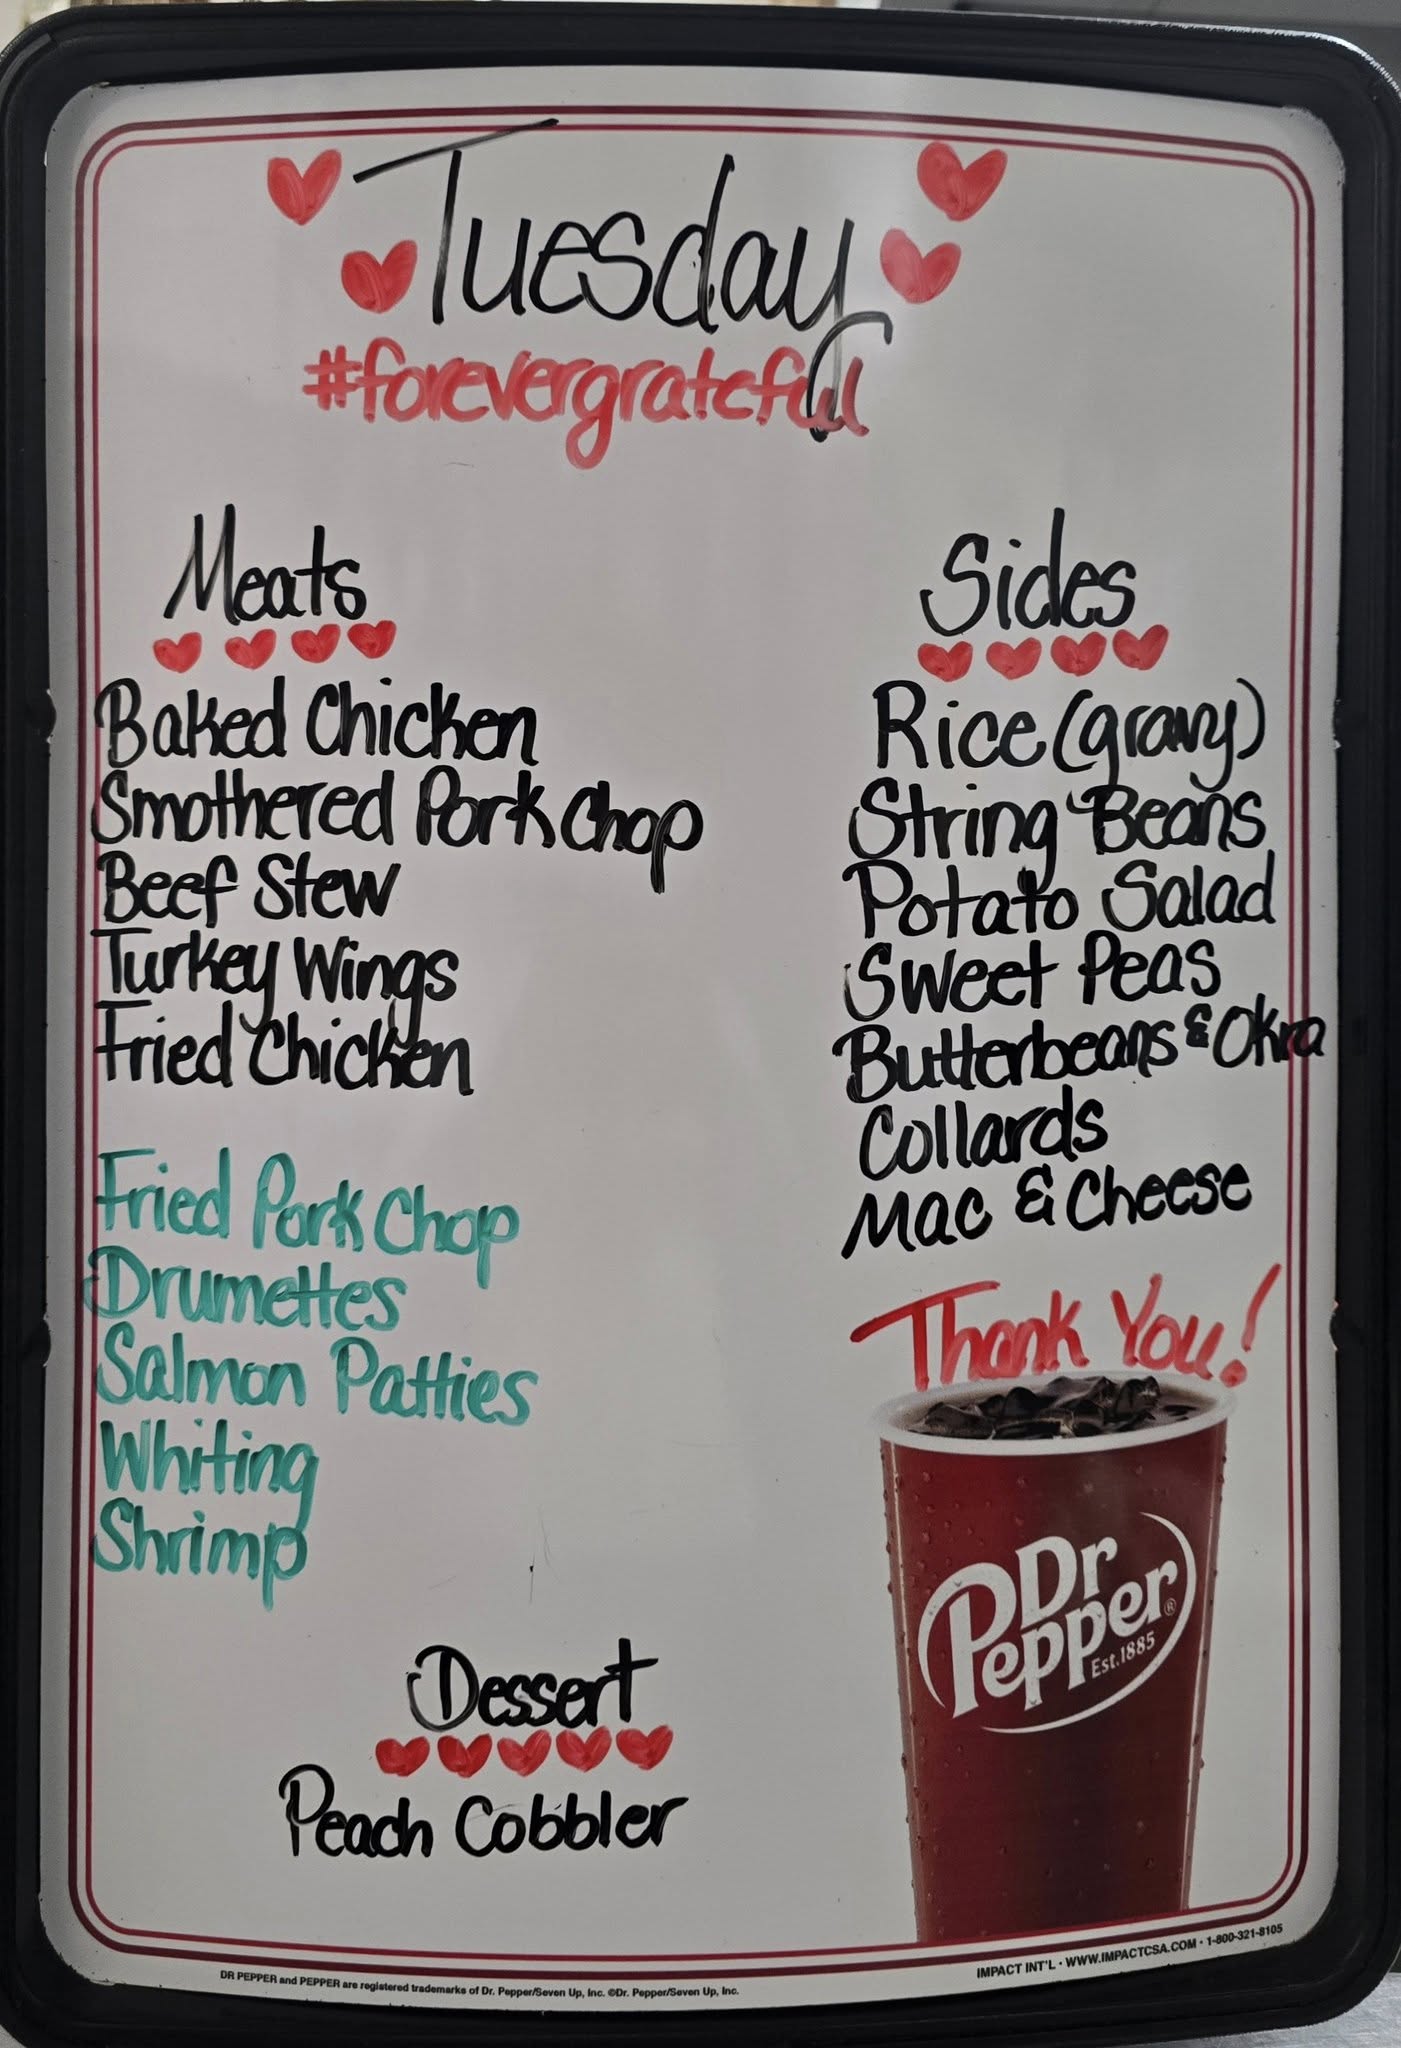 Tuesday
#forevergrateful
Meats
Baked Chicken
Smothered Pork Chop
Beef Stew
Turkey Wings
Fried Chicken
Fried Pork Chop
Drumettes
Salmon Patties
Whiting
Shrimp
Sides
Rice (gravy)
String Beans
Potato Salad
Sweet Peas
Butterbeans & Okra
Collards
Mac & Cheese
Thank You!
Dr
Pepper®
Est.1885
Dessert
Peach Cobbler
DR PEPPER and PEPPER are registered trademarks of Dr. Pepper/Seven Up, Inc. ©Dr. Pepper/Seven Up, Inc.
IMPACT INT'L • WWW.IMPACTCSA.COM • 1-800-321-8105